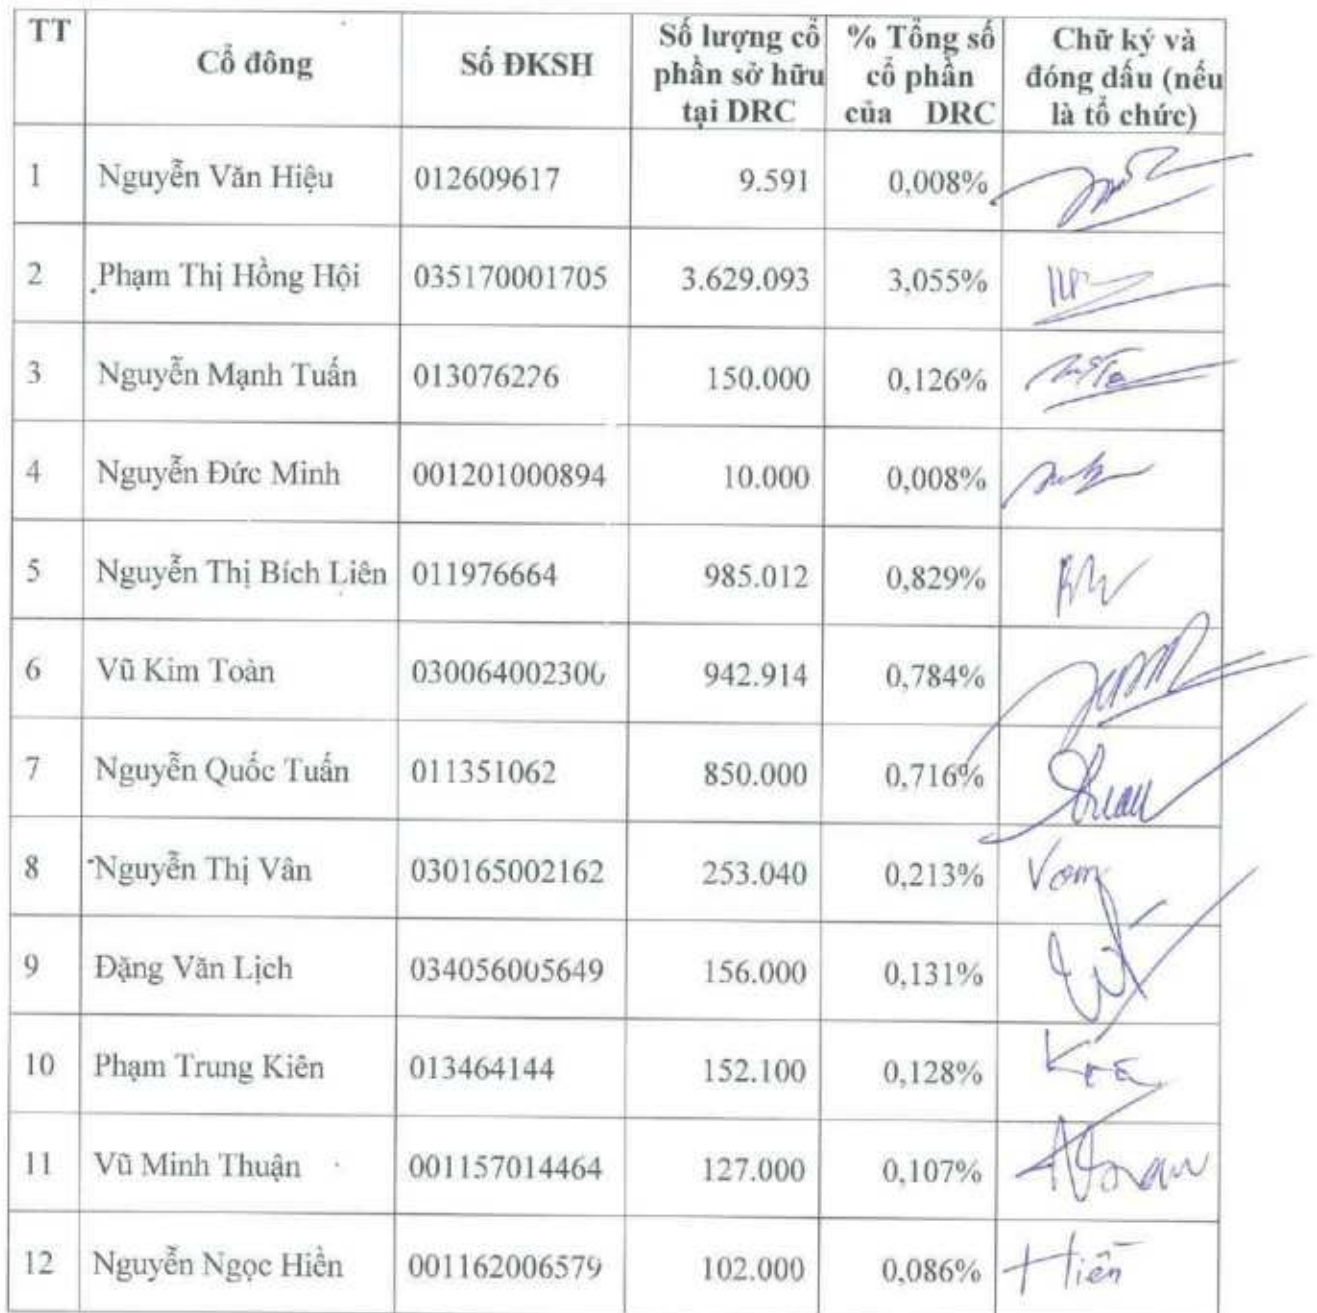 TT Cổ đông Số ĐKSH Số lượng cổ phần sở hữu tại DRC % Tổng số cổ phần của DRC Chữ ký và đóng dấu (nếu là tổ chức)
1 Nguyễn Văn Hiệu 012609617 9.591 0,008%
2 Phạm Thị Hồng Hội 035170001705 3.629.093 3,055%
3 Nguyễn Mạnh Tuấn 013076226 150.000 0,126%
4 Nguyễn Đức Minh 001201000894 10.000 0,008%
5 Nguyễn Thị Bích Liên 011976664 985.012 0,829%
6 Vũ Kim Toàn 030064002300 942.914 0,784%
7 Nguyễn Quốc Tuấn 011351062 850.000 0,716%
8 Nguyễn Thị Vân 030165002162 253.040 0,213%
9 Đặng Văn Lịch 034056005649 156.000 0,131%
10 Phạm Trung Kiên 013464144 152.100 0,128%
11 Vũ Minh Thuận 001157014464 127.000 0,107%
12 Nguyễn Ngọc Hiền 001162006579 102.000 0,086% Hiền